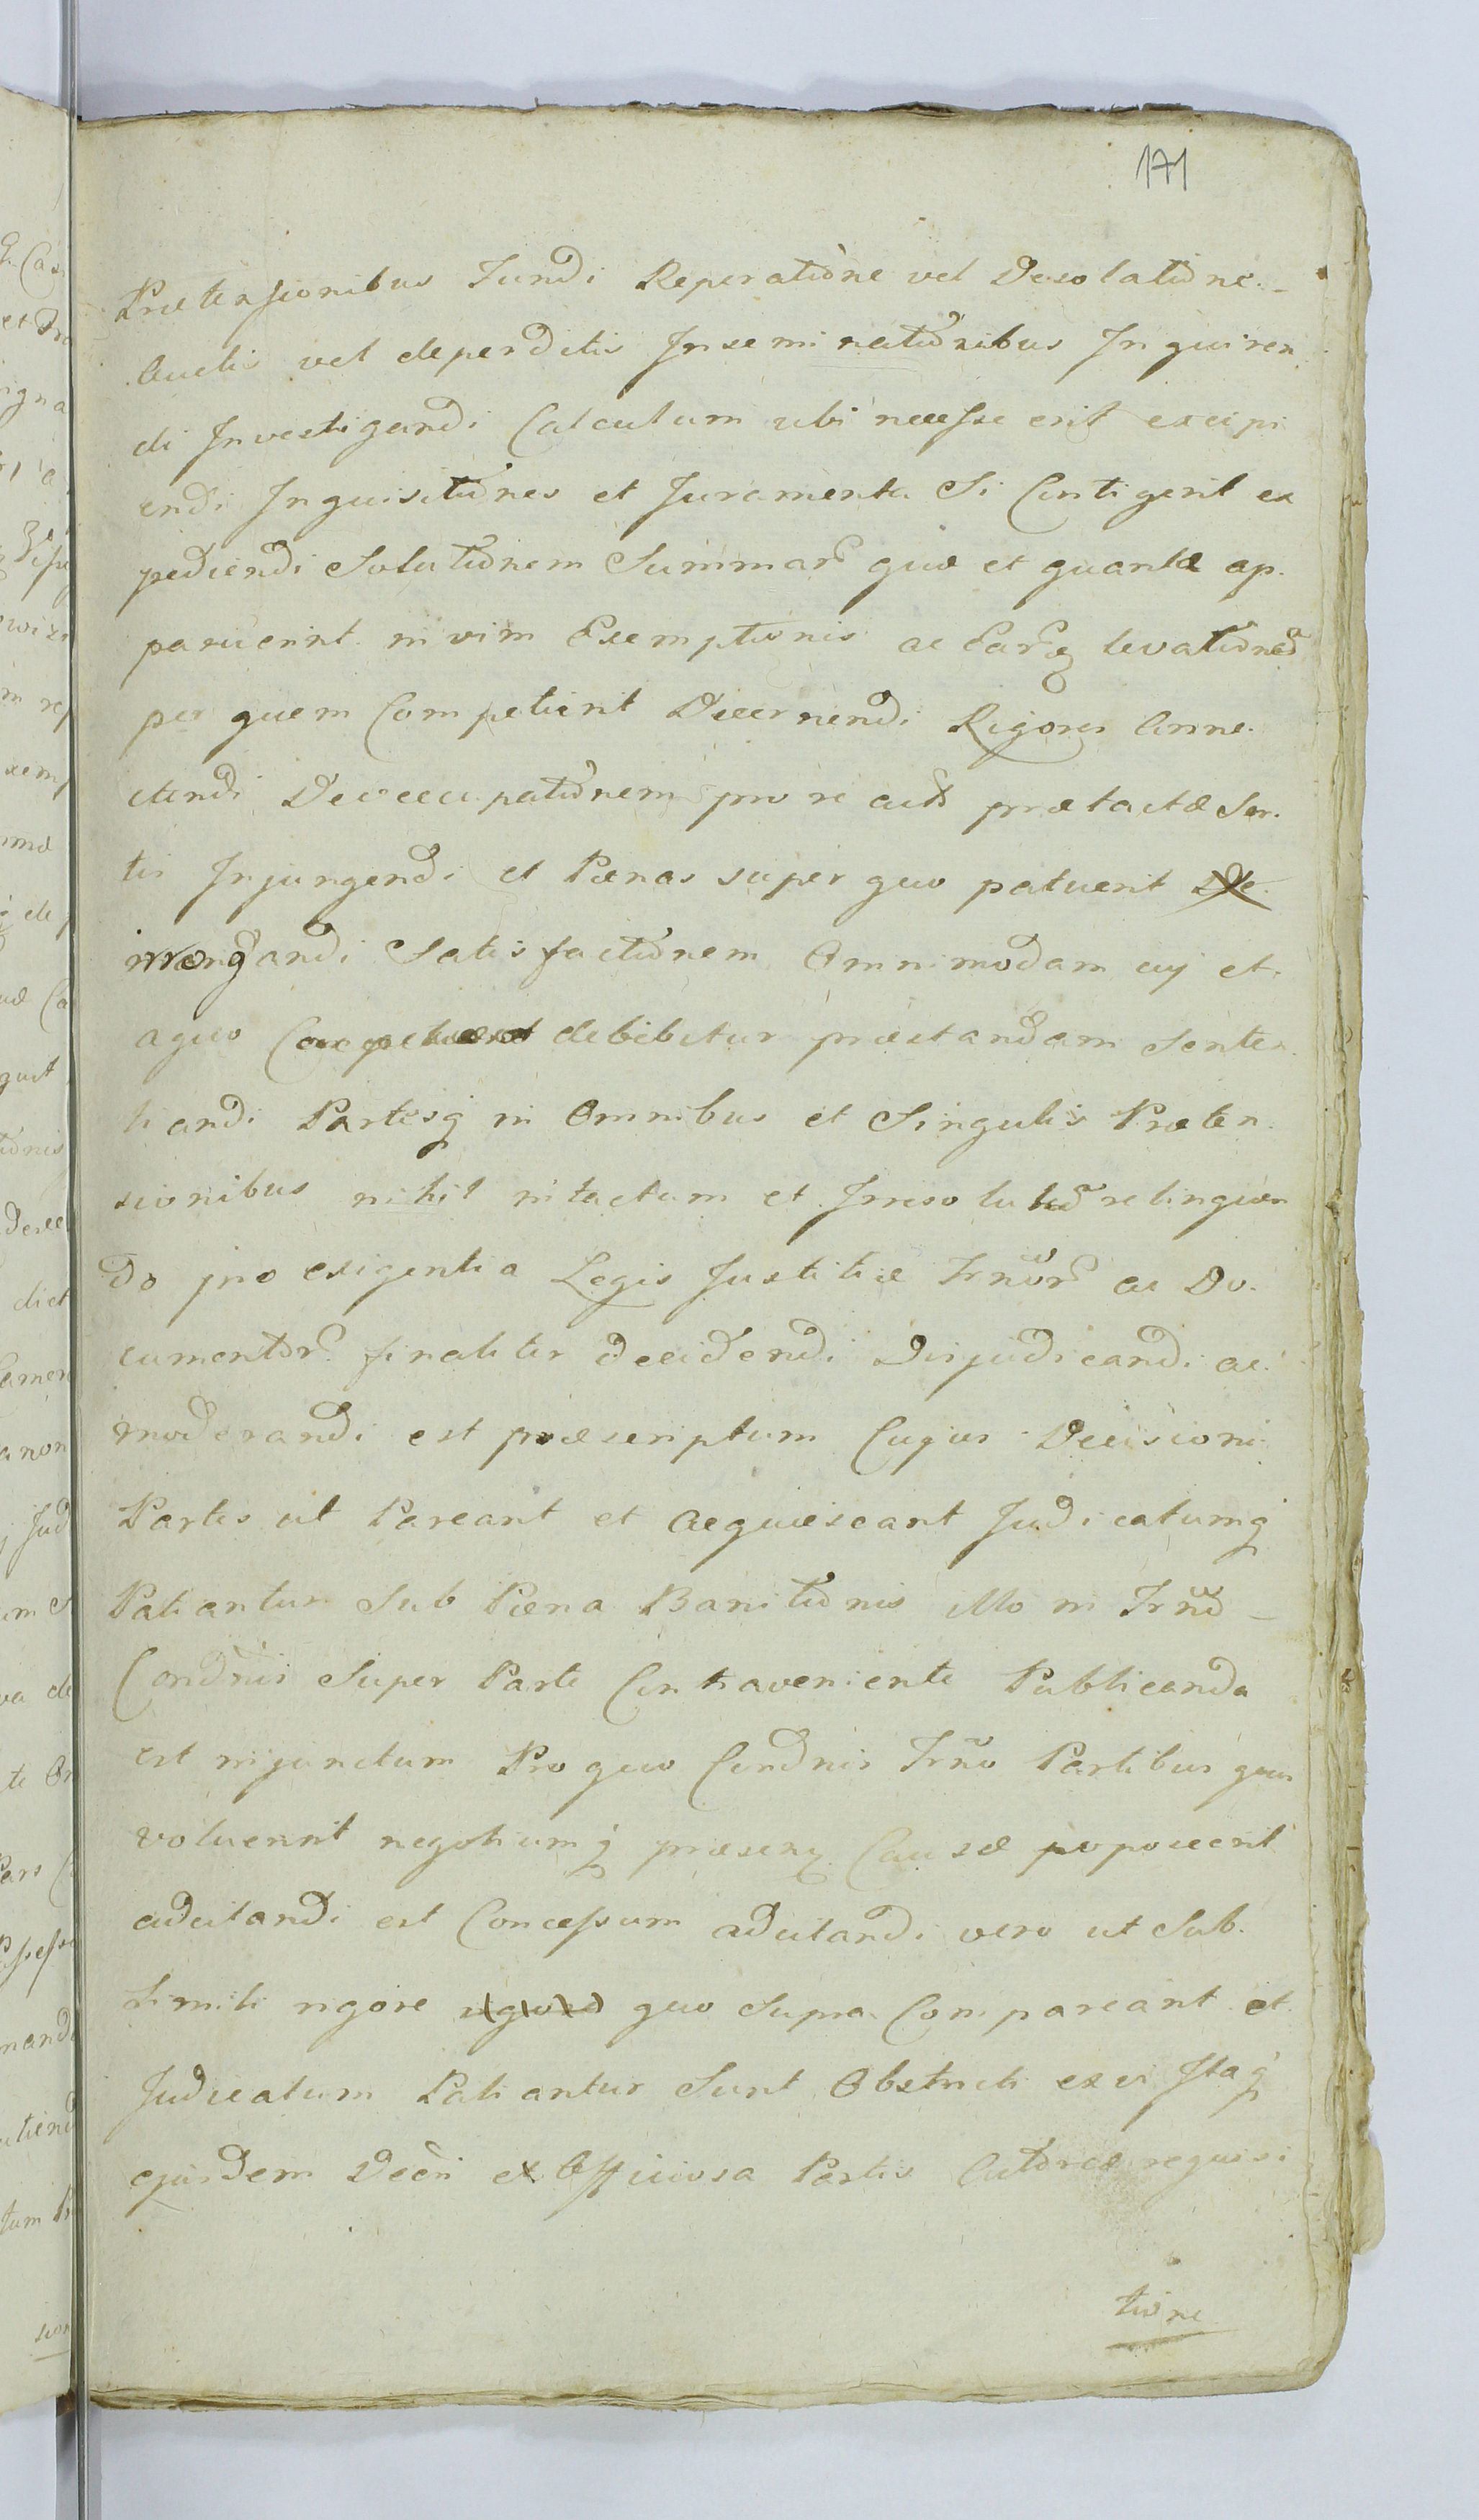 171
Prætensionibus Fundi Reperatiõne vel Desolatiõne
Auctis vel deperditis Inseminatiõnibus Inquiren
di Investigandi Calculum ubi necesse erit excipi
endi Inquisitiõnes et Juramenta Si Contigerit ex
pediendi Solutiõnem Summar quæ et quantæ ap
paruerint in vim Exemptionis ac Earq levatiõnẽ
per quem Competierit Decernendi Rigores Anne
ctendi Deoccupatiõnem pro re prætactæ Sor
tis Injungendi et Pænas super quo patuerit De
irrogandi Satisfactiõnem Omnimodam cuj et
a quo debebitur præstandam Senten
tiandi Partesq in Omnibus et Singulis Præten
sionibus nihil intactum et Irresolutũ relinquen
do pro exigentia Legis Justitiæ Trnõr ac Do
cumentor finaliter decidendi Dirjudicandi ac
moderandi est præscriptum Cujus Decisioni
Partes ut Pareant et acquiescant Judicatumq
Patiantur Sub Pæna Banitiõnis Illo in Trnõ
Condnis Super Parte Contraveniente Publicanda
est injunctum Pro quo Condnis Trnõ Partibus quos
voluerint negotiumq præsens Causæ poposcerit
adcitandi est Concessum adcitandi vero ut Sub
Simili rigore quo Supra Compareant et
Judicatum Patiantur Sunt Obstricti ex vi Itaq
ejusdem Decri ex Officiosa Partis Actoreæ requisi
tione